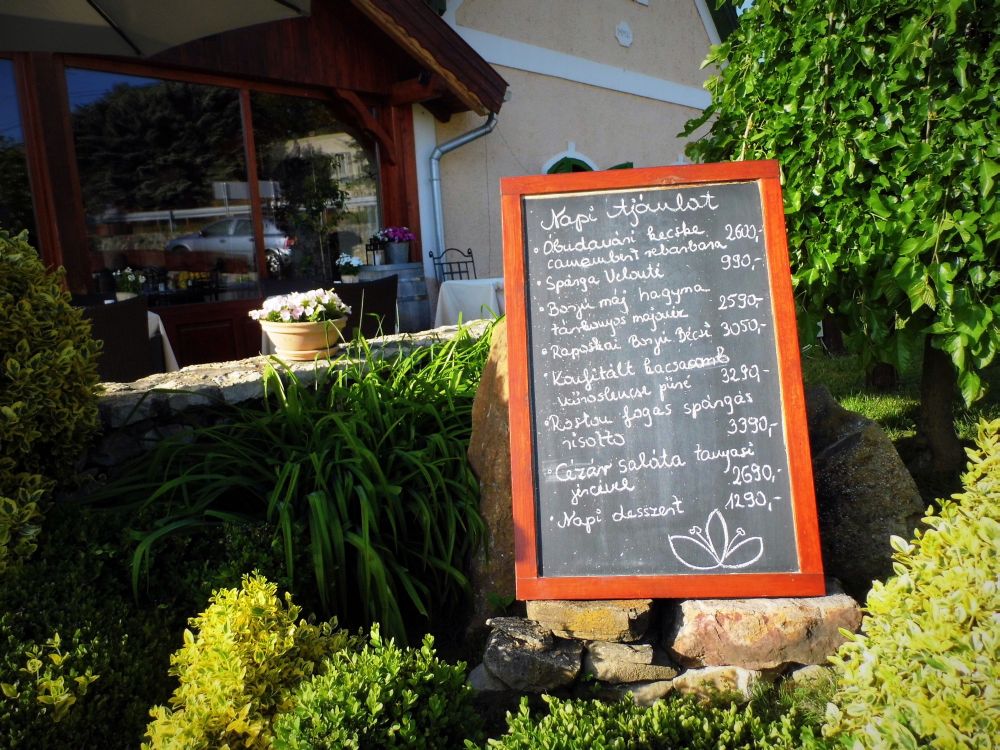 Napi Ajánlat
• Óbudavári kecske
camembert rebarbara 2600,-
• Spárga Velouté 990,-
• Borjú máj hagyma
tárkonyos majonéz 2590,-
• Rapoškai Borjú Bécsi 3050,-
• Konfitált kacsacomb
vöröslencse püré 3290,-
• Roston fogas spárgás
risotto 3390,-
• Cézár saláta tanyasi
jércével 2690,-
• Napi desszert 1290,-